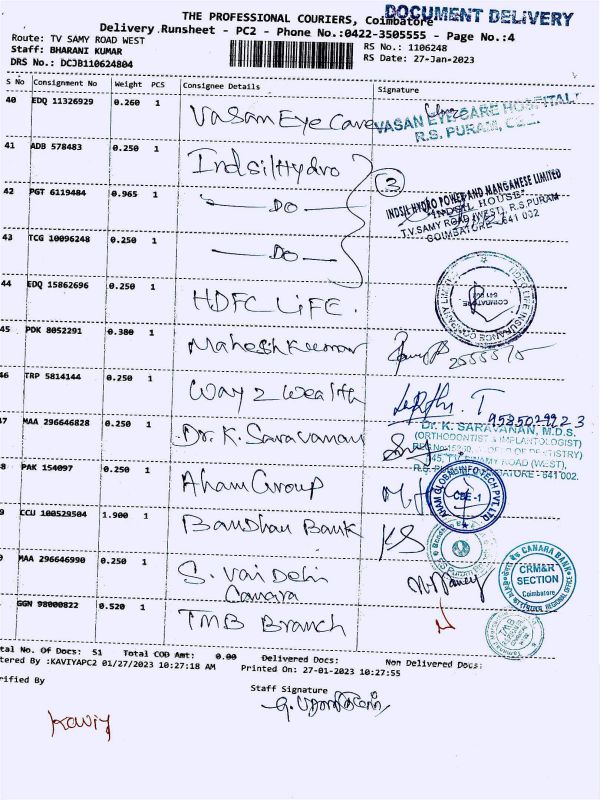 THE PROFESSIONAL COURIERS, Coimbatore
DOCUMENT DELIVERY
Delivery Runsheet - PC2 - Phone No.:0422-3505555 - Page No.:4
Route: TV SAMY ROAD WEST
Staff: BHARANI KUMAR
DRS No.: DCJB110624804
RS No.: 1106248
RS Date: 27-Jan-2023
S No Consignment No Weight PCS Consignee Details Signature
40 EDQ 11326929 0.260 1 Vasan Eye Care
VASAN EYE CARE HOSPITAL
R.S. PURAM, CBE.
41 ADB 578483 0.250 1 Indsil Hydro
3
42 PGT 6119484 0.965 1 DO
INDSIL HYDRO POWER AND MANGANESE LIMITED
"INDSIL HOUSE"
T.V.SAMY ROAD (WEST), R.S.PURAM
COIMBATORE - 641 002
43 TCG 10096248 0.250 1 DO
44 EDQ 15862696 0.250 1 HDFC LiFE.
HDFC LIFE INSURANCE COMPANY LIMITED
COIMBATORE
641 002
45 PDK 8052291 0.380 1 Mahesh Kumar
2555575
46 TRP 5814144 0.250 1 Way 2 Wealth
47 MAA 296646828 0.250 1 Dr. K. Saravanan
Dr. K. SARAVANAN, M.D.S.
(ORTHODONTIST & IMPLANTOLOGIST)
ROAD (WEST),
COIMBATORE - 641 002.
8 PAK 154097 0.250 1 Aham Group
AHAM GLOBAL INFO TECH PVT. LTD.
CBE -1
9 CCU 100529504 1.900 1 Bandhan Bank KS
MAA 296646990 0.250 1 S. Vaidehi
Canara
CANARA BANK
CRM&R
SECTION
Coimbatore
GGN 98000822 0.520 1 TMB Branch
tal No. Of Docs: 51 Total COD Amt: 0.00 Delivered Docs: Non Delivered Docs:
tered By :KAVIYAPC2 01/27/2023 10:27:18 AM Printed On: 27-01-2023 10:27:55
rified By
Staff Signature
Kaviy